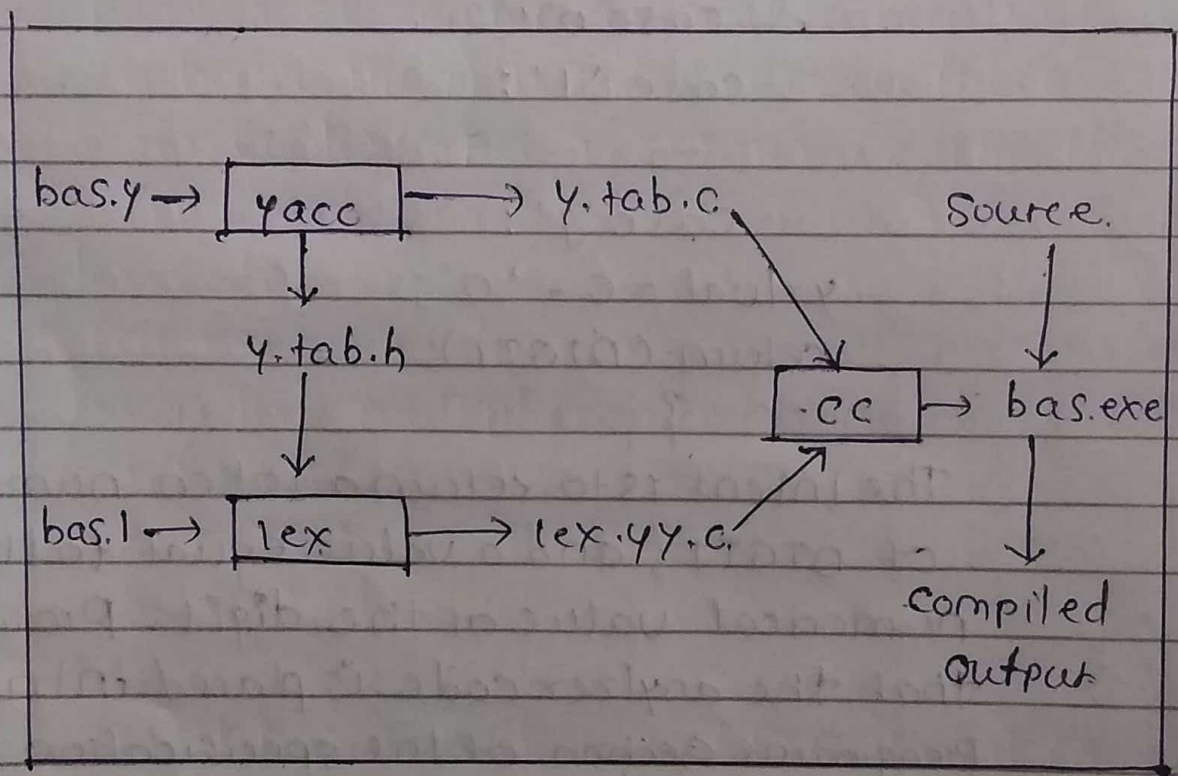 bas.y → yacc → y.tab.c
source.
y.tab.h
.cc → bas.exe
bas.l → lex → lex.yy.c.
compiled
output